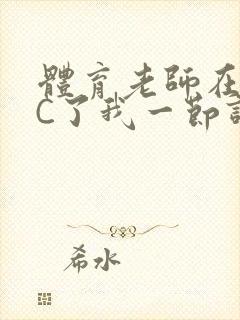 體育老師在
C了我一節
希水